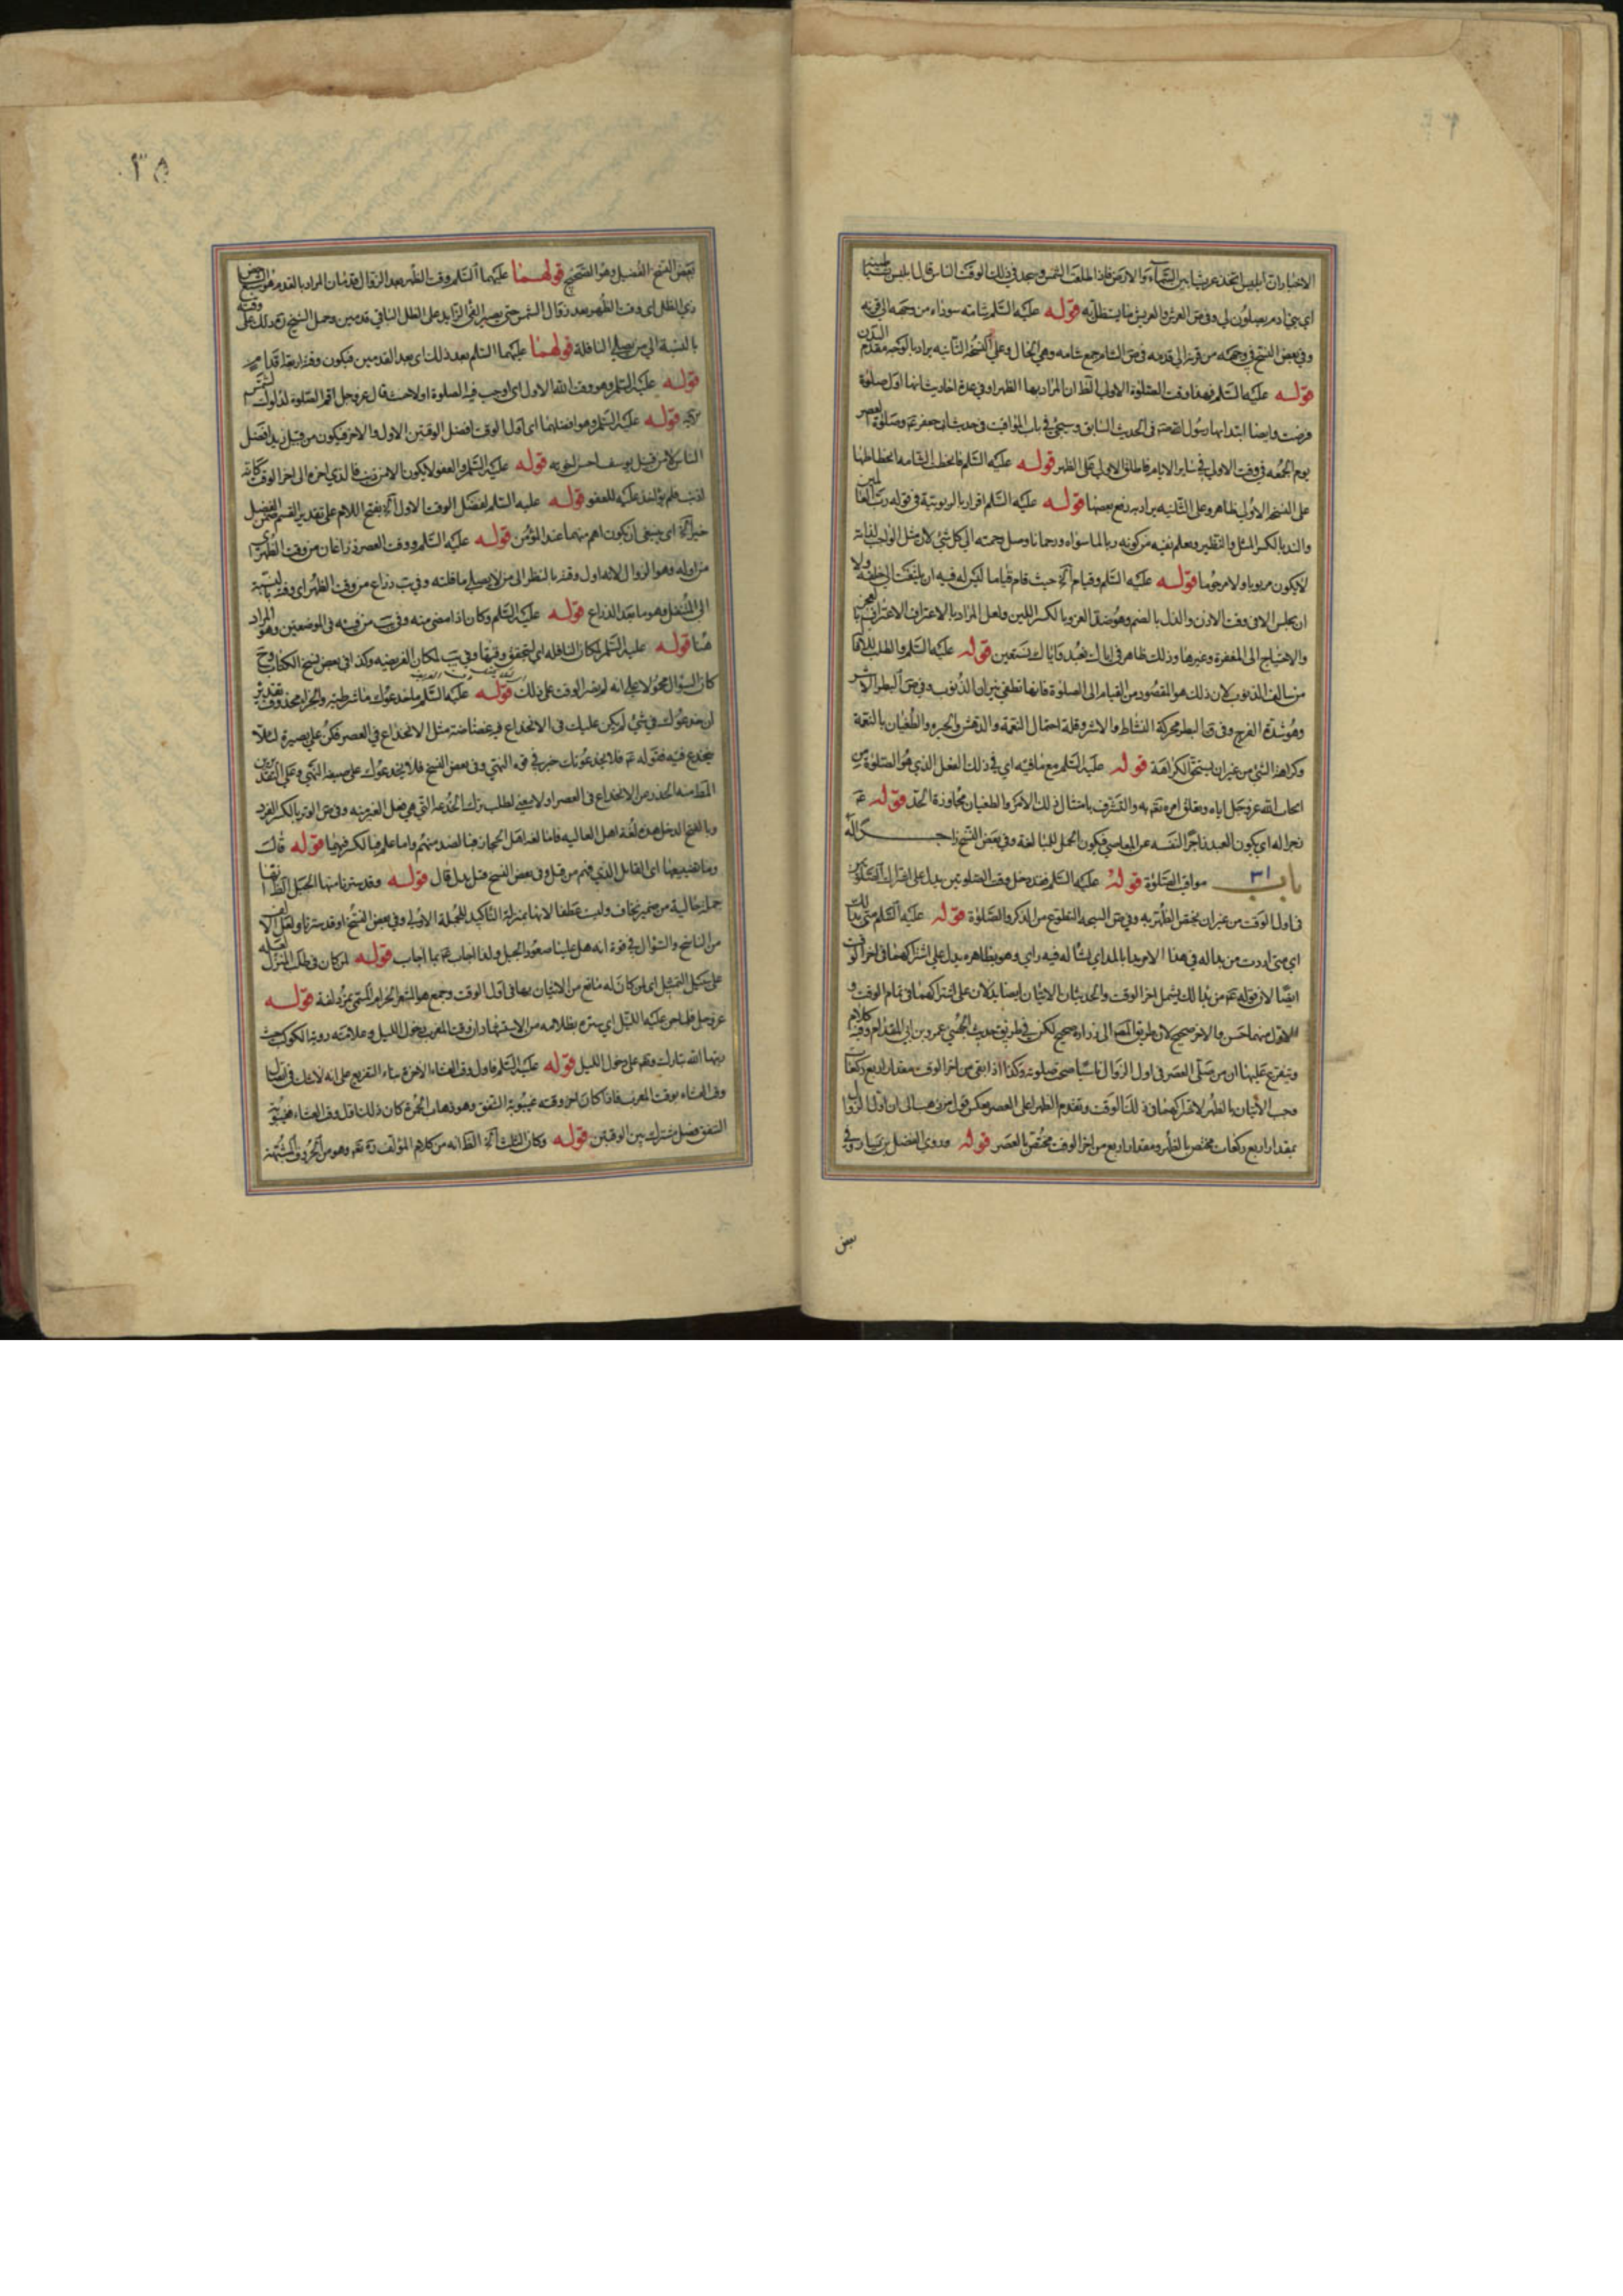 الاخبار ان ابليس اتخذ عرشا بين السماء والارض فاذا طلعت الشمس وسجد في ذلك الوقت الناس قال ابليس لشياطينه
اي بني ادم يصلون لي وفي ص العرش والعريش ما يستظل به قوله عليه السلم شامته سوداء من وجهه الى قرنه
وفي بعض النسخ في وجهه من قرنه الى قدمه في ص الشام جمع شامه وهي الخال وعلى النسخة الثانيه يراد بالوجه مقدم البدن
قوله عليه السلم فهذا وقت الصلوة الاولى الظ ان المراد بها الظهر وفي عدة احاديث انها اول صلوة
فرضت وايضا ابتدا بها رسول الله في الحديث السابق وسيجئ في باب المواقيت في حديث ابي جعفر ع وصلوة العصر
يوم الجمعه في وقت الاولى في ساير الايام فاطلق الاولى على الظهر قوله عليه السلم فانحطت الشامه انحطاطها
على النسخة الاولى ظاهر وعلى الثانيه يراد به رفع بعضها قوله عليه السلم اقرار بالربوبية في قوله رب العالمين
والند بالكسر المثل والنظير ويعلم نفيه من كونه ربا لما سواه ورحمانا وصل رحمته الى كل شئ لان مثل الواجب لذاته
لا يكون مربوبا ولا مرحوما قوله عليه السلم وقيام آه حيث قام قياما ليس له فيه ان يلتفت الى خلفه ولا
ان يجلس الا في وقت الاذن والذل بالضم وهو ضد العز وبالكسر اللين ولعل المراد بالاعتراف الاعتراف بالعجز
والاحتياج الى المغفرة وغيرها وذلك ظاهر في اياك نعبد واياك نستعين قوله عليه السلم والطلب للاقالة
من سالف الذنوب لان ذلك هو المقصود من القيام الى الصلوة فانها تطفي نيران الذنوب وفي ص البطر الاشر
وهو شدة الفرح وفي ق البطر محركة النشاط والاشر وقلة احتمال النعمة والدهش والحيره والطغيان بالنعمة
وكراهة الشئ من غير ان يستحق الكراهة قوله عليه السلم مع ما فيه اي في ذلك الفعل الذي هو الصلوة من
ايجاب الله عز وجل اياه وتعلق امره تعم به والتشرف بامتثال ذلك الامر والطغيان مجاوزة الحد قوله ع
زجرا له اي يكون العبد زاجرا لنفسه عن المعاصي فيكون الحمل للمبالغة وفي بعض النسخ زاجرا له
باب ٣١ مواقيت الصلوة قوله عليه السلم فقد دخل وقت الصلوتين يدل على اشتراك الصلوتين
في اول الوقت من غير ان يختص الظهر به وفي ص السبحه التطوع من الذكر والصلوة قوله عليه السلم متى بدا لك
اي متى اردت من بدا له في هذا الامر بدا بالمد اي نشا له فيه راي وهو بظاهره يدل على اشتراكهما في اخر الوقت
ايضا لان قوله ع متى بدا لك يشمل اخر الوقت والحديثان الاتيان ايضا يدلان على اشتراكهما في تمام الوقت و
الاول منهما حسن والاخر صحيح لان طريق المصنف الى زرارة صحيح لكن في طريق حديث الجهني عمرو بن ابي المقدام وفيه كلام
ويتفرع عليها ان من صلى العصر في اول الزوال ناسيا صحت صلوته وكذا اذا بقي من اخر الوقت مقدار اربع ركعات
وجب الاتيان بالظهر لاشتراكهما في ذلك الوقت وتقدم الظهر على العصر بعكس قول من ذهب الى ان اول الزوال
بمقدار اربع ركعات مختص بالظهر ومقدار اربع من اخر الوقت مختص بالعصر قوله وروى الفضيل بن يسار وفي
بعض
٣٥
بعض النسخ الفضيل وهو الصحيح قولهما عليهما السلم وقت الظهر بعد الزوال قدمان المراد بالقدم هو السبع
ذي الظل اي وقت الظهر بعد زوال الشمس حتى يصير الفئ الزايد على الظل الباقي قدمين وحمل الشيخ ره ذلك على
بالنسبة الى من يصلي النافلة قولهما عليهما السلم بعد ذلك اي بعد القدمين فيكون وقته اربعة اقدام
قوله عليه السلم وهو وقت الله الاول اي اوجب فيه الصلوة اولا حيث قال عز وجل اقم الصلوة لدلوك الشمس
قوله عليه السلم وهو افضلهما اي اول الوقت افضل الوقتين الاول والاخر فيكون من قبيل زيد افضل
الناس لا من قبيل يوسف احسن اخوته قوله عليه السلم والعفو لا يكون الا من ذنب فالذي اخره الى اخر الوقت كانه
اذنب فلم يؤاخذ عليه للعفو قوله عليه السلم لفضل الوقت الاول آه بفتح اللام على تقدير القسم
خير آه اي ينبغي ان يكون اهم منهما عند المؤمن قوله عليه السلم ووقت العصر ذراعان من وقت الظهر اي
من اوله وهو الزوال لانه اول وقته بالنظر الى من لا يصلي نافلته وفي يب ذراع من وقت الظهر اي وقته بالنسبة
الى المتنفل وهو ما بعد الذراع قوله عليه السلم وكان اذا مضى منه وفي يب من فيئه في الموضعين وهو المراد
هنا قوله عليه السلم لمكان النافله اي لتحقق وقتها وفي يب لمكان الفريضه وكذا في بعض نسخ الكتاب وح
كان السؤال محمولا على انه لم يصر الوقت على ذلك قوله عليه السلم ما خدعوك ما شرطيه والجزاء محذوف بتقدير
ان خدعوك في شئ لم يكن عليك في الانخداع فيه غضاضة مثل الانخداع في العصر فكن على بصيرة لئلا
ينخدع فيه فقوله ع فلا يخدعونك خبر في قوه النهي وفي بعض النسخ فلا يخدعوك على صيغة النهي وعلى التقديرين
وبالفتح الدخل هذه لغة اهل العاليه فاما لغة اهل الحجاز فبالضد منهم واما تميم فبالكسر فيهما قوله قالت
قوله وقد سترنا منها الجبل الظ انها
جملة حالية من ضمير نخاف وليست عطفا لانها بمنزلة التاكيد للجملة الاولى وفي بعض النسخ او قد سترنا ولعل الالف
من الناسخ والسؤال في قوة انه هل علينا صعود الجبل ولذا اجاب ع بما اجاب قوله لمن كان في طلب المنزل لعله
على سبيل التمثيل اي لمن كان له مانع من الاتيان بها في اول الوقت وجمع هو المشعر الحرام المسمى بمزدلفة قوله
عز وجل فلما جن عليه الليل اي ستره بظلامه
ربهما الله تبارك وتعم على دخول الليل قوله عليه السلم فاول وقت العشاء الاخرة بناء التفريع على انه لا شك في اتصال
وقت العشاء بوقت المغرب فاذا كان اخر وقته غيبوبة الشفق وهو ذهاب الحمرة كان ذلك اول وقت العشاء فغيبوبة
الشفق فصل مشترك بين الوقتين قوله وكان الثلث آه الظ انه من كلام المؤلف ره